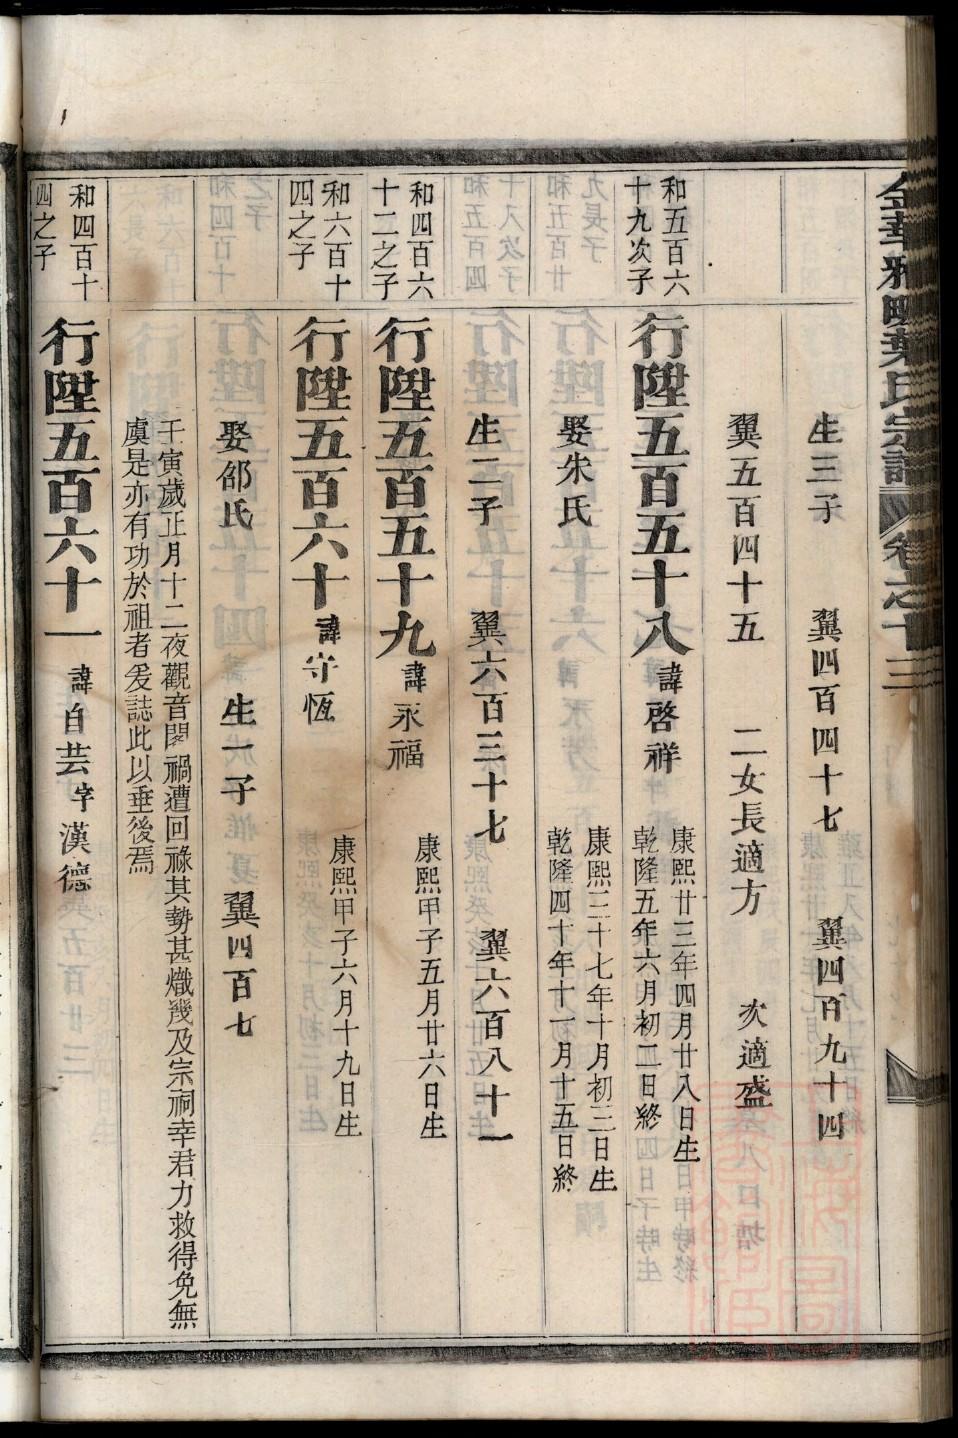 金華雅畈葉氏宗譜 卷之十三
生三子 翼四百四十七 翼四百九十四
翼五百四十五 二女長適方 次適盛
和五百六十九次子
行陞五百五十八 諱啓祥 康熙廿三年四月廿八日生 乾隆五年六月初二日終
娶朱氏 康熙三十七年十月初三日生 乾隆四十年十一月十五日終
生二子 翼六百三十七 翼六百八十一
和四百六十二之子
行陞五百五十九 諱永福 康熙甲子五月廿六日生
和六百十四之子
行陞五百六十 諱守恆 康熙甲子六月十九日生
娶邵氏 生一子 翼四百七
壬寅歲正月十二夜觀音閣禍遭回祿其勢甚熾幾及宗祠幸君力救得免無
虞是亦有功於祖者爰誌此以垂後焉
和四百十四之子
行陞五百六十一 諱自芸字漢德